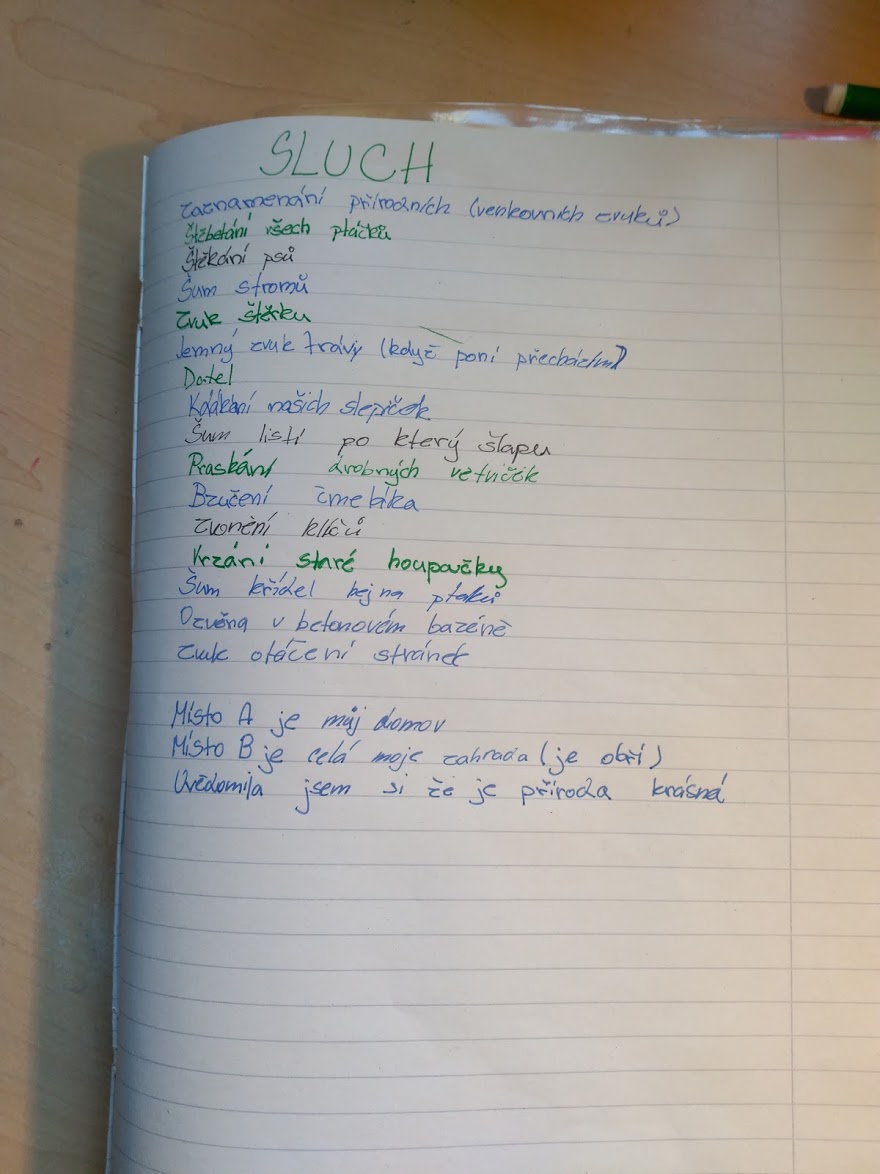 SLUCH
Zaznamenání přírodních (venkovních zvuků)
Štěbetání všech ptáčků
Štěkání psů
Šum stromů
Zvuk štěrku
Jemný zvuk trávy (když poní přecházím)
Datel
Kdákání našich slepiček
Šum listí po který šlapu
Praskání drobných větviček
Bzučení čmeláka
Zvonění klíčů
Vrzání staré houpačky
Šum křídel hejna ptáků
Ozvěna v betonovém bazéně
Zvuk otáčení stránek
Místo A je můj domov
Místo B je celá moje zahrada (je obří)
Uvědomila jsem si že je příroda krásná